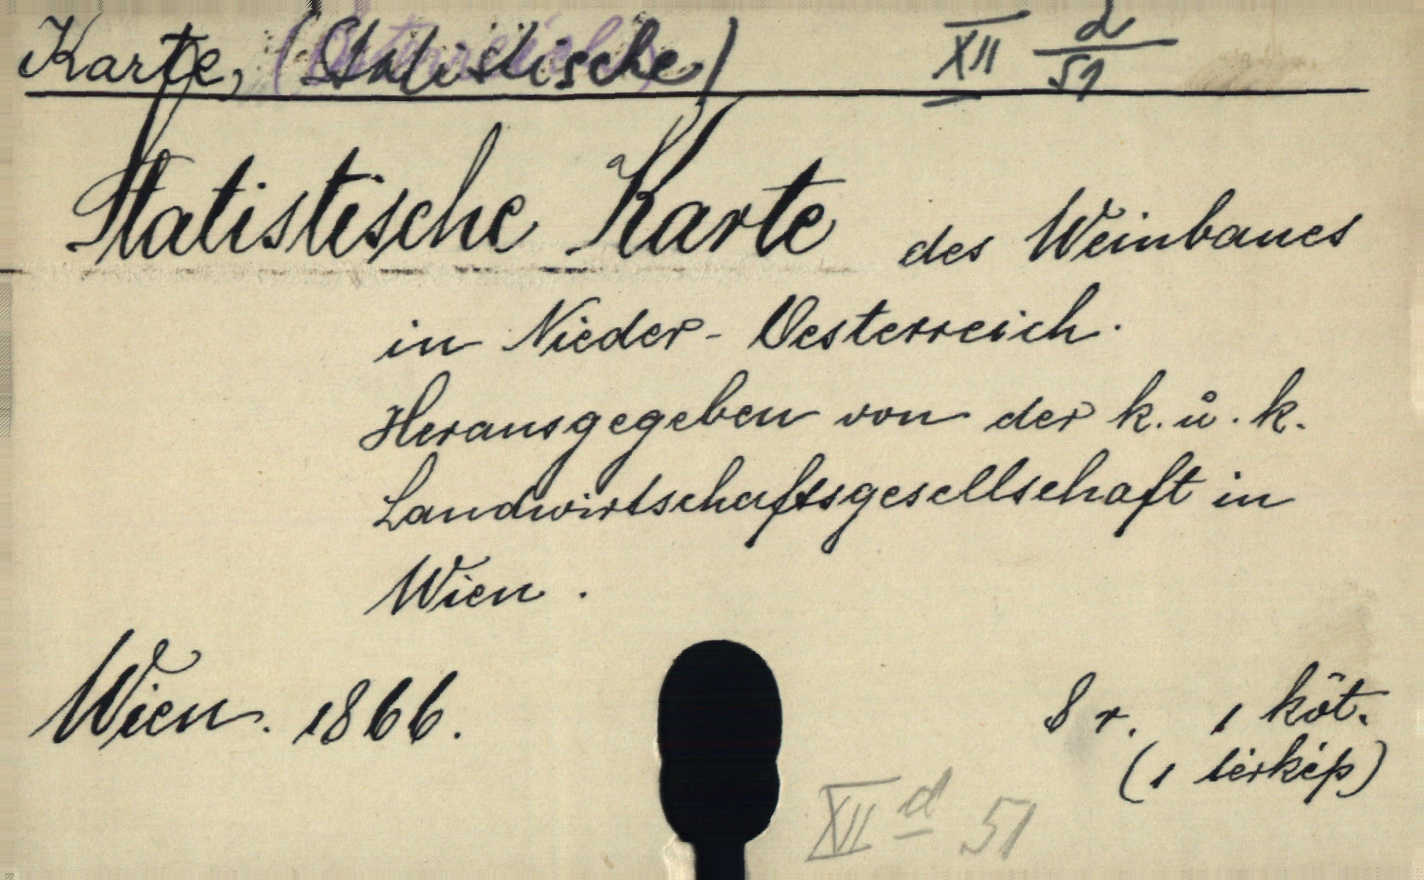 Karte, (Statistische) XII d/51
Statistische Karte des Weinbaues
in Nieder-Oesterreich.
Herausgegeben von der k. u. k.
Landwirtschaftsgesellschaft in
Wien.
Wien. 1866. 8 r. 1 köt.
(1 térkép)
XII d 51